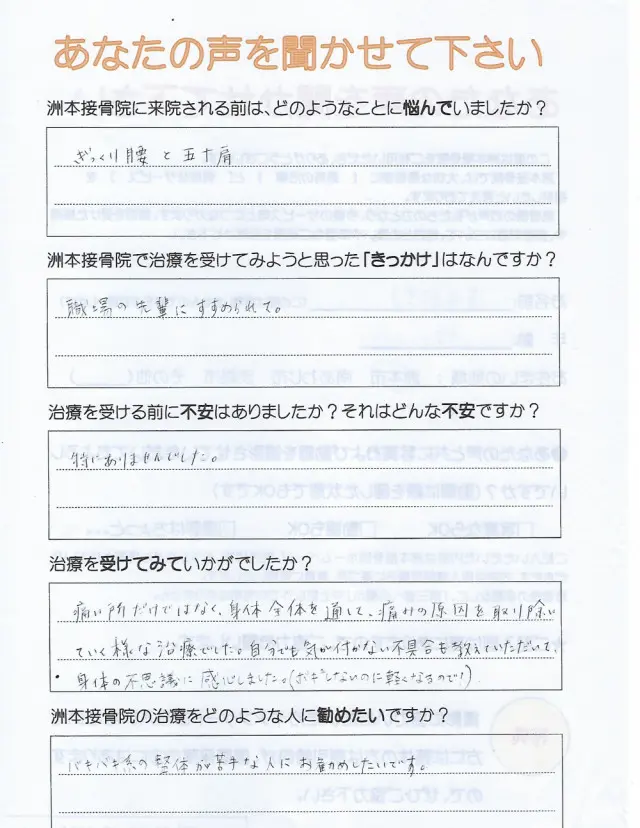 あなたの声を聞かせて下さい
洲本接骨院に来院される前は、どのようなことに悩んでいましたか？
ぎっくり腰と五十肩
洲本接骨院で治療を受けてみようと思った「きっかけ」はなんですか？
職場の先輩にすすめられて。
治療を受ける前に不安はありましたか？それはどんな不安ですか？
特にありませんでした。
治療を受けてみていかがでしたか？
痛い所だけではなく、身体全体を通して、痛みの原因を取り除い
ていく様な治療でした。自分でも気が付かない不具合も教えていただいて、
身体の不思議に感心しました。(ボキしないのに軽くなるので!)
洲本接骨院の治療をどのような人に勧めたいですか？
バキバキ系の整体が苦手な人にお勧めしたいです。